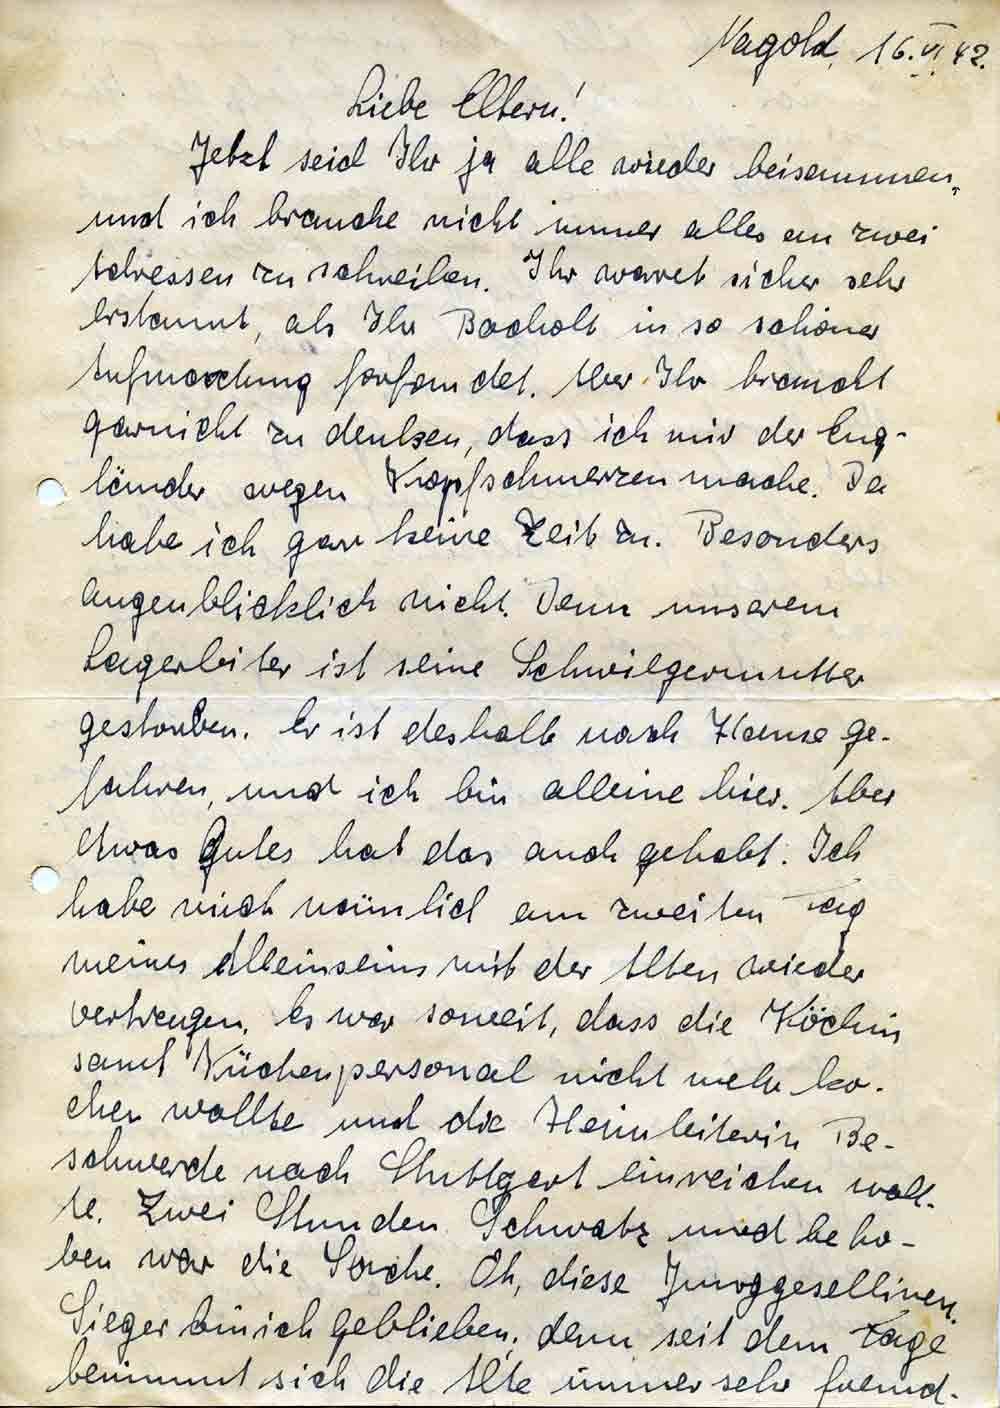 Nagold, 16.VI.42.
Liebe Eltern!
Jetzt seid Ihr ja alle wieder beisammen,
und ich brauche nicht immer alles an zwei
Adressen zu schreiben. Ihr waret sicher sehr
erstaunt, als Ihr Bocholt in so schöner
Aufmachung vorfandet. Aber Ihr braucht
garnicht zu denken, dass ich mir der Eng-
länder wegen Kopfschmerzen mache. Da
habe ich gar keine Zeit zu. Besonders
augenblicklich nicht. Denn unserem
Lagerleiter ist seine Schwiegermutter
gestorben. Er ist deshalb nach Hause ge-
fahren, und ich bin alleine hier. Aber
etwas Gutes hat das auch gehabt. Ich
habe mich nämlich am zweiten Tag
meines Alleinseins mit der Alten wieder
vertragen. Es war soweit, dass die Köchin
samt Küchenpersonal nicht mehr ko-
chen wollte und die Heimleiterin Be-
schwerde nach Stuttgart einreichen woll-
te. Zwei Stunden Schwatz und beho-
ben war die Sache. Oh, diese Junggesellinen.
Sieger bin ich geblieben, denn seit dem Tage
benimmt sich die Alte immer sehr freund-